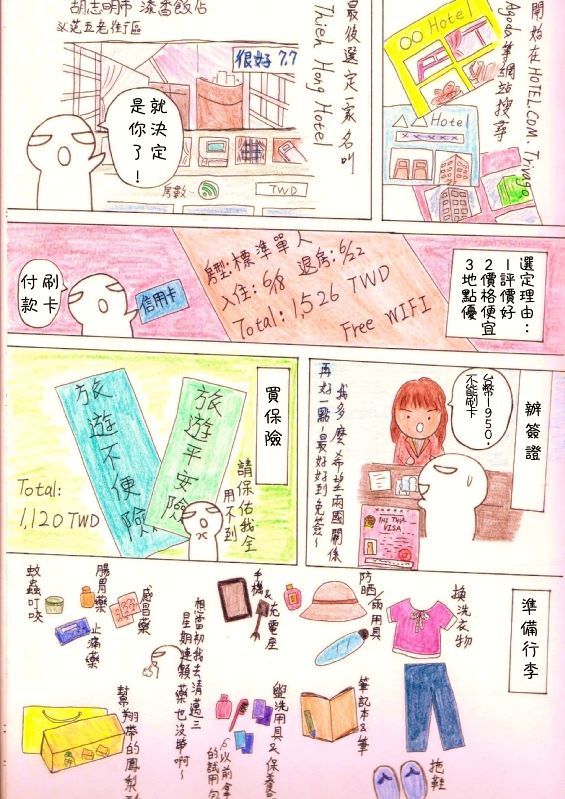 開始在HOTEL.COM. Trivago
Agoda等網站搜尋
OO Hotel
△△Hotel
最後選定一家名叫
Thien Hong Hotel
胡志明市 添香飯店
范五老街區
很好 7.7
就決定
是你了!
房數
TWD
選定理由:
1評價好
2價格便宜
3地點優
房型:標準單人
入住: 6/8 退房: 6/22
Total: 1,526 TWD
Free WIFI
信用卡
刷卡
付款
辦簽證
台幣1950,
不能刷卡
我多麼希望兩國關係
再好一點~最好好到免簽~
VISA
買保險
旅遊平安險
旅遊不便險
請保佑我全
用不到
Total:
1,120 TWD
準備行李
換洗衣物
拖鞋
防晒/雨用具
筆記本&筆
手機&充電座
盥洗用具&保養
以前拿
的試用包
想當初我去清邁三
星期連顆藥也沒帶啊~
感冒藥
腸胃藥
止痛藥
蚊蟲叮咬
幫翔帶的鳳梨